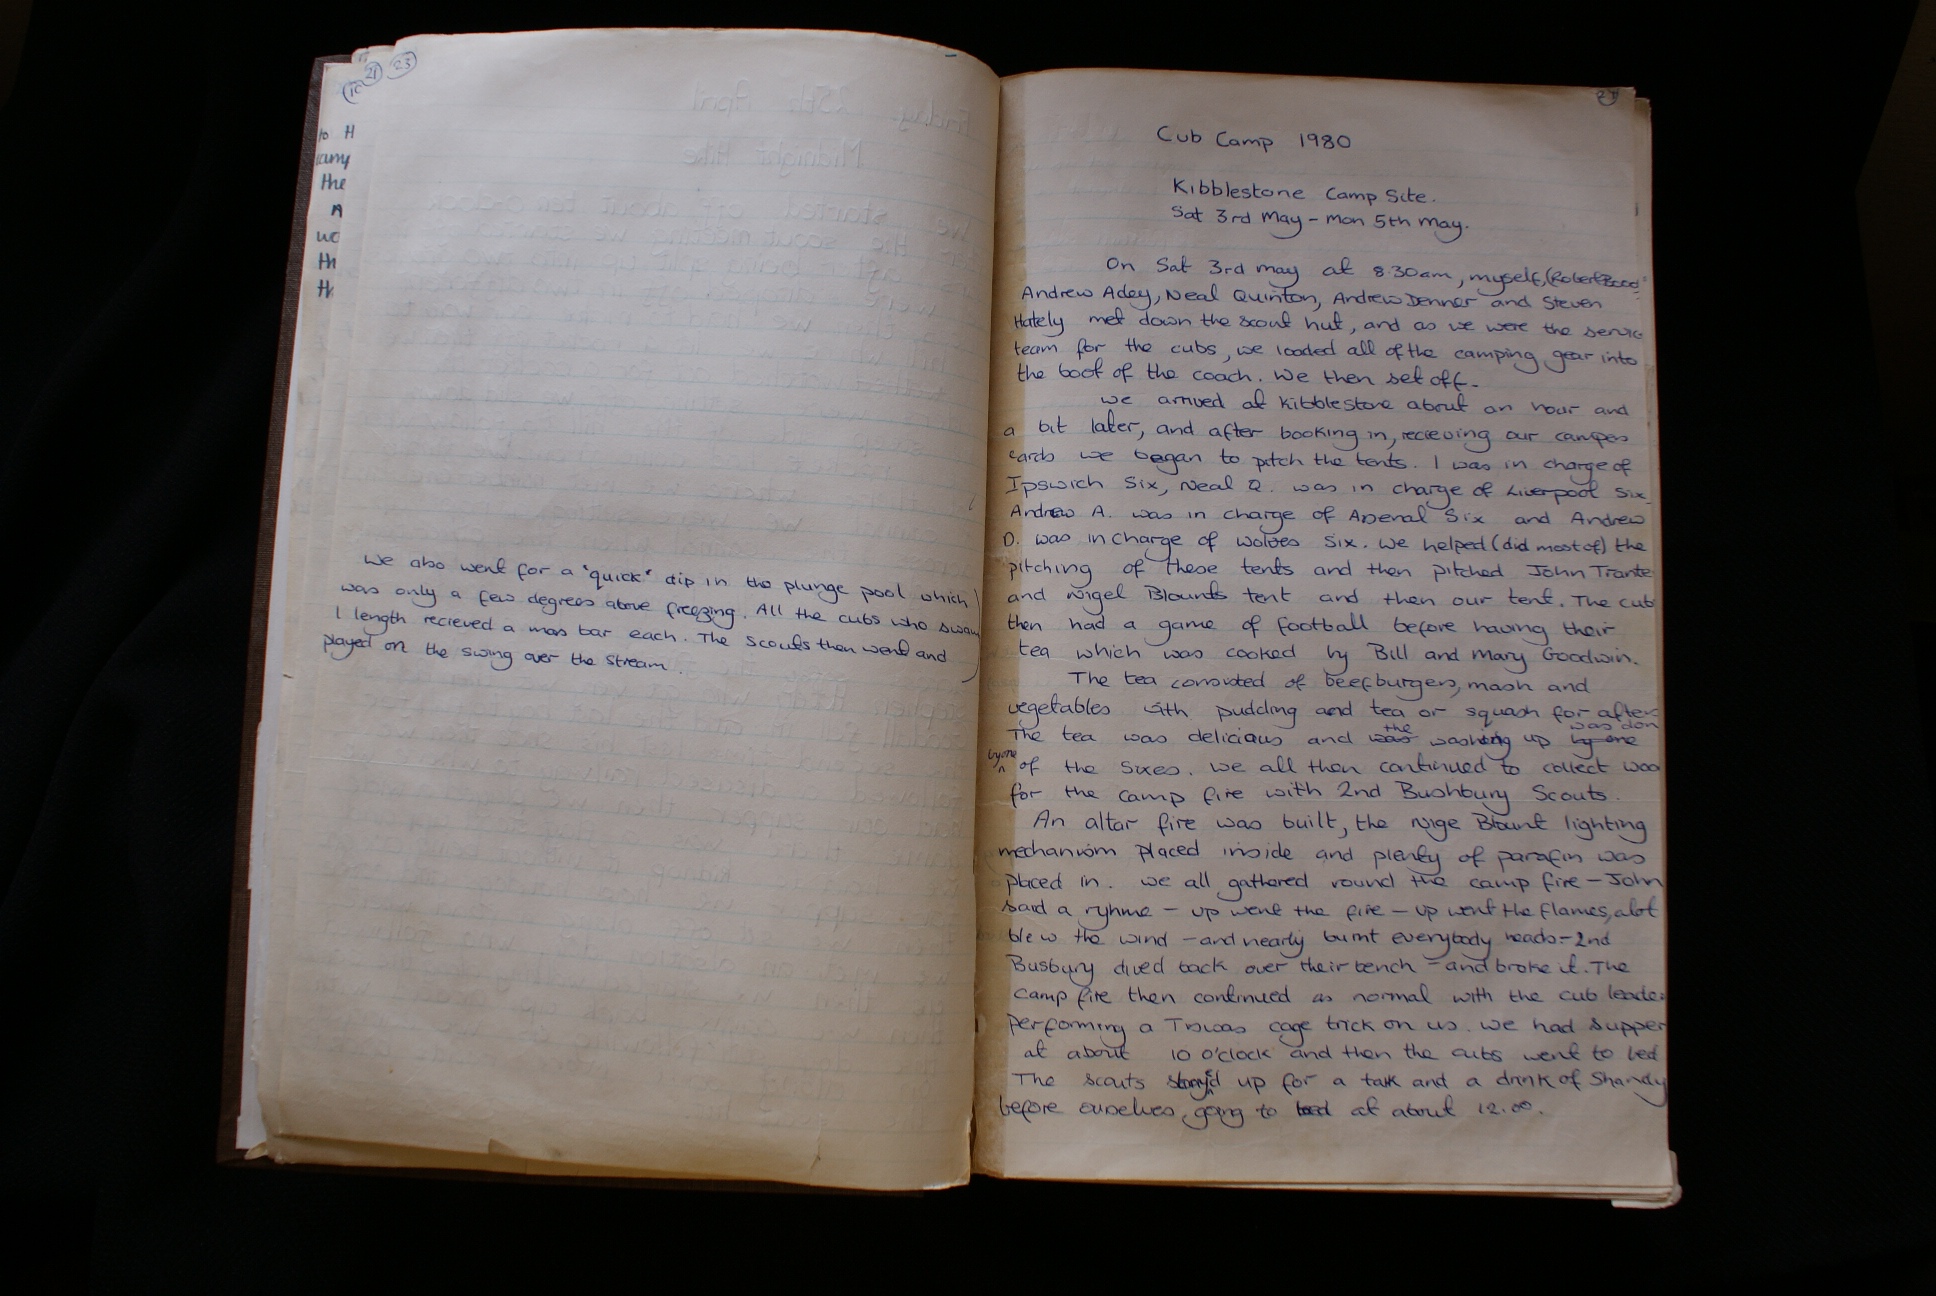 21
23
to H
any
the
A
wo
th
th
We also went for a "quick" dip in the plunge pool which
was only a few degrees above freezing. All the cubs who swam
1 length recieved a mars bar each. The scouts then went and
played on the swing over the stream.
Cub Camp 1980
Kibblestone Camp Site.
Sat 3rd May - Mon 5th May.
On Sat 3rd May at 8.30am, myself, (Robert
Andrew Adey, Neal Quinton, Andrew Denner and Steven
Hately met down the scout hut, and as we were the servic
team for the cubs, we loaded all of the camping gear into
the boot of the coach. We then set off.
We arrived at Kibblestone about an hour and
a bit later, and after booking in, recieving our campers
cards we began to pitch the tents. I was in charge of
Ipswich Six, Neal Q. was in charge of Liverpool Six
Andrew A. was in charge of Arsenal Six and Andrew
D. was in charge of Wolves Six. We helped (did most of) the
pitching of these tents and then pitched John Trante
and Nigel Blounts tent and then our tent. The cub
then had a game of football before having their
tea which was cooked by Bill and Mary Goodwin.
The tea consisted of beefburgers, mash and
vegetables with pudding and tea or squash for after
The tea was delicious and was the washing up by one was don
by one of the sixes. We all then continued to collect woo
for the camp fire with 2nd Bushbury Scouts.
An altar fire was built, the Nige Blount lighting
mechanism placed inside and plenty of parafin was
placed in. We all gathered round the camp fire - John
said a ryhme - up went the fire - up went the flames, alot
blew the wind - and nearly burnt everybody heads - 2nd
Busbury dived back over their bench - and broke it. The
camp fire then continued as normal with the cub leader
performing a cage trick on us. We had supper
at about 10 o'clock and then the cubs went to bed
The scouts stayed up for a talk and a drink of Shandy
before ourselves going to bed at about 12.00.